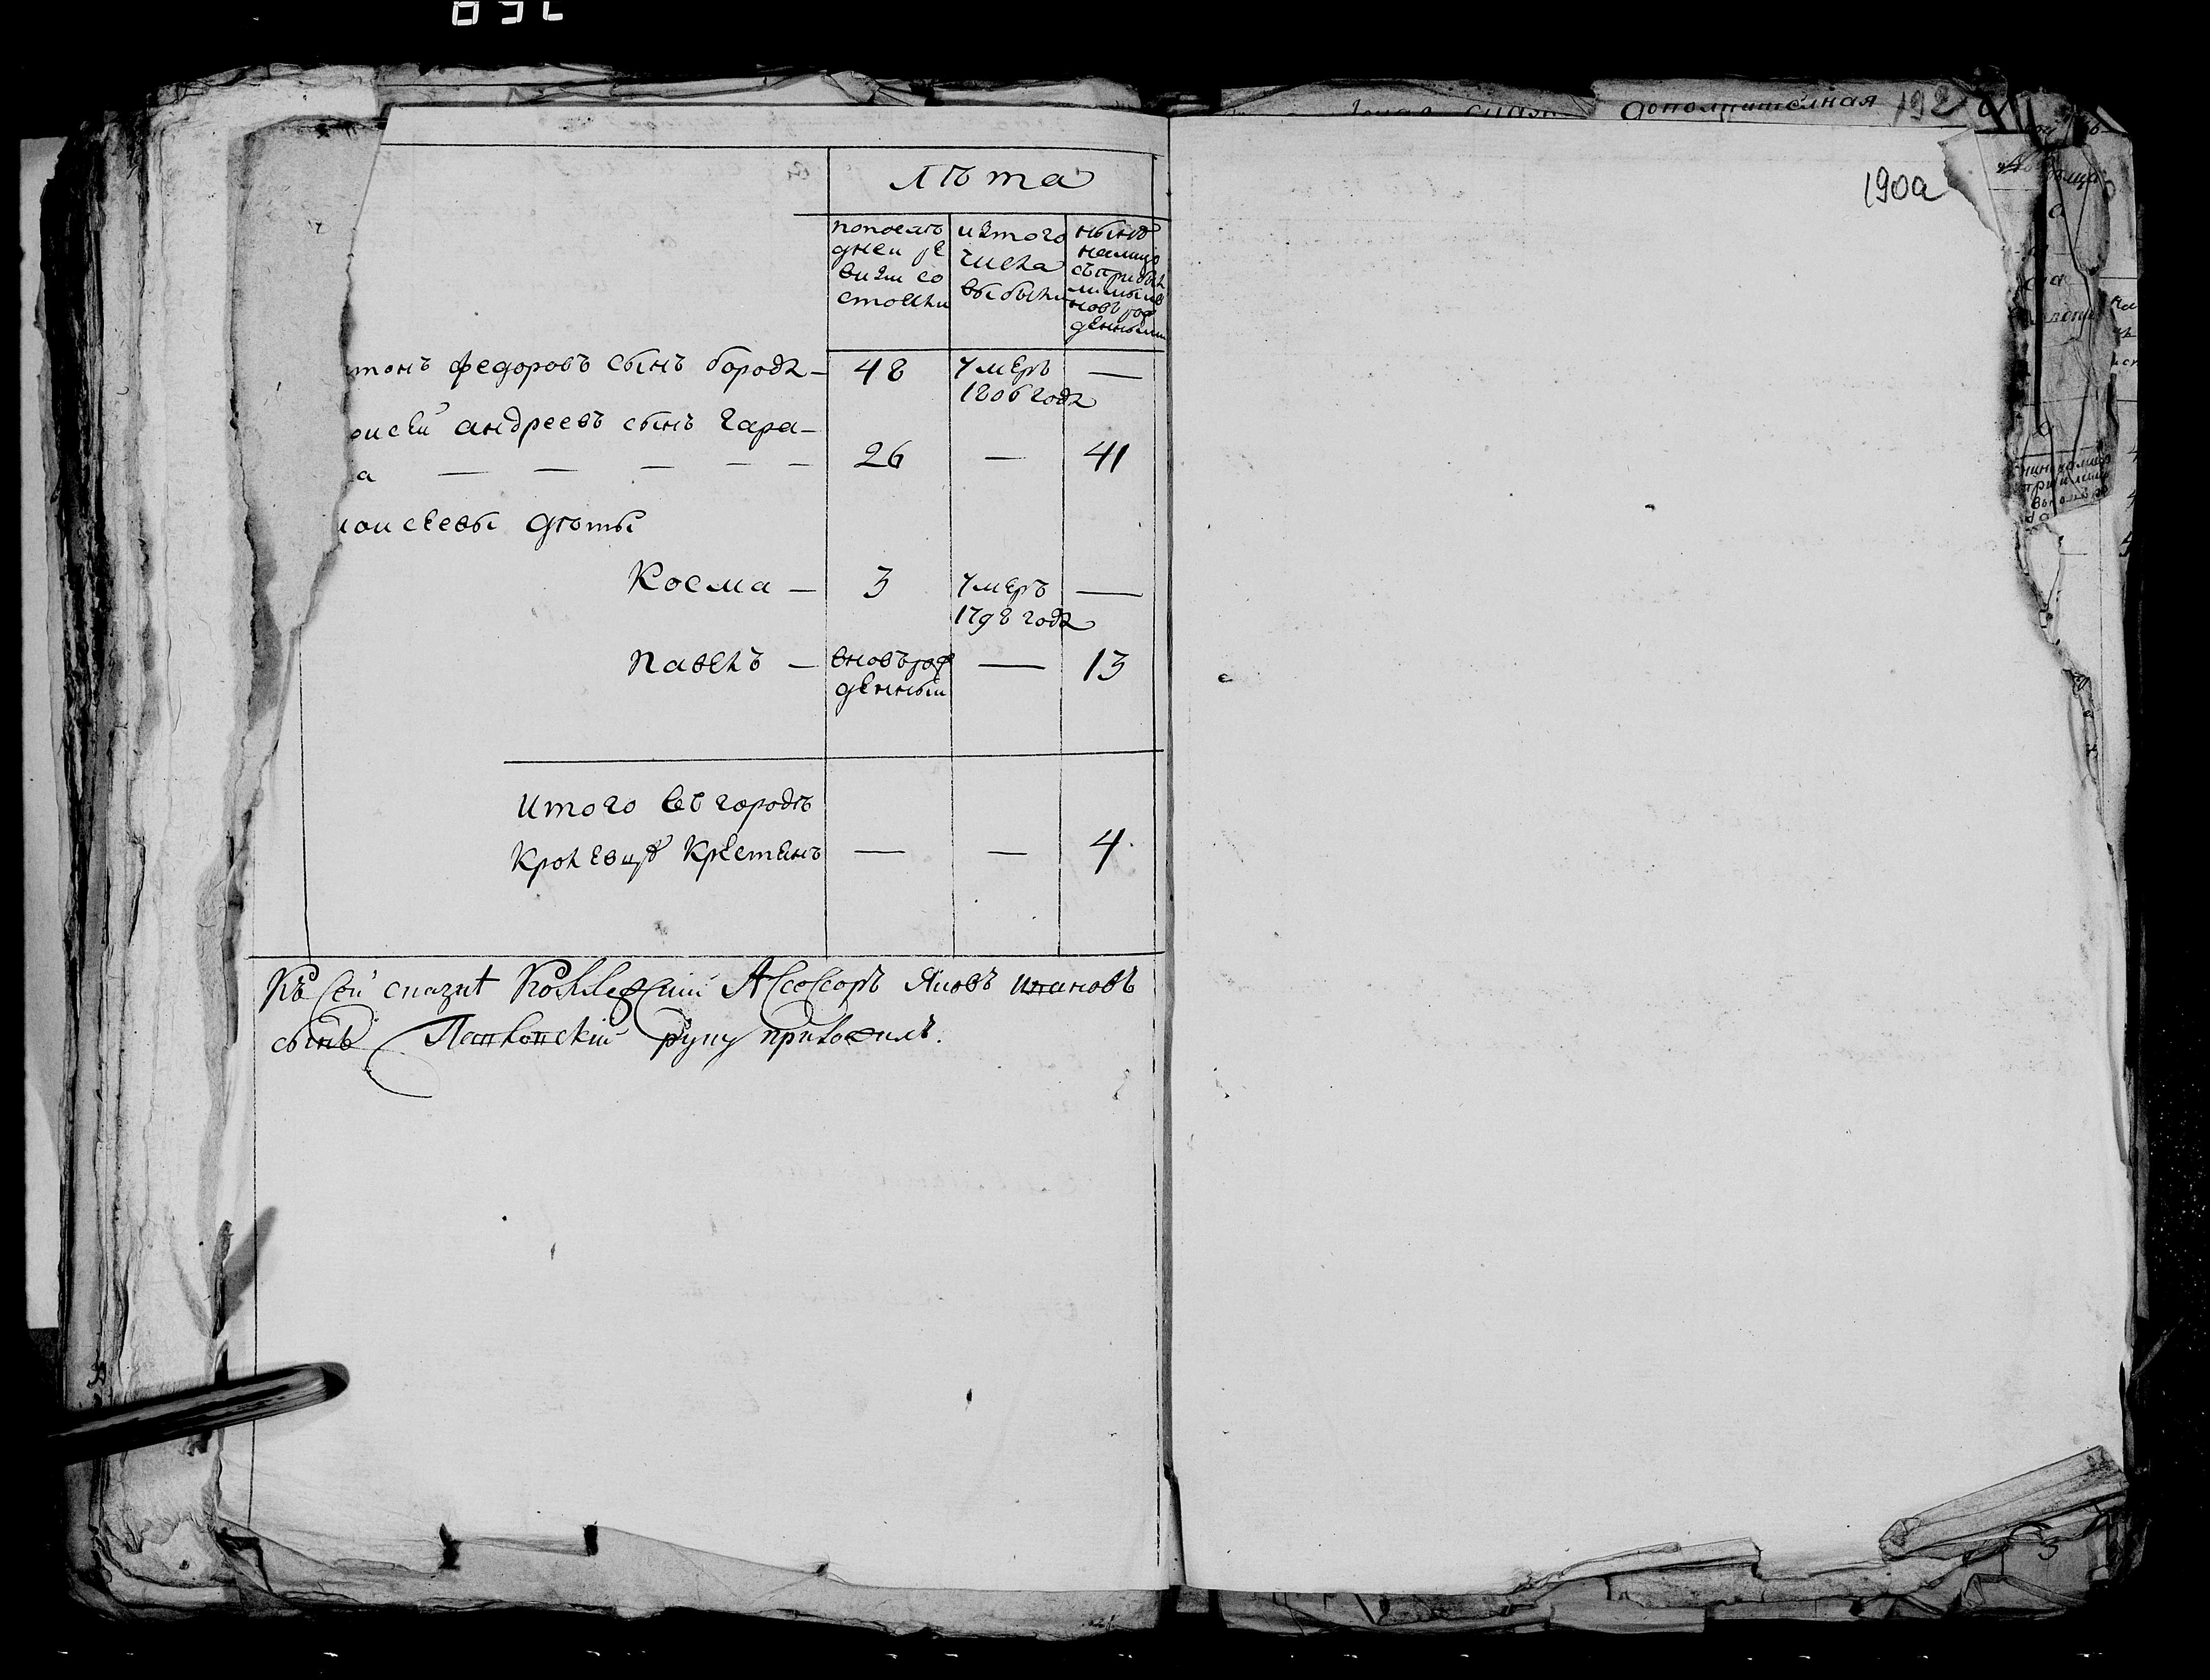 лѣта
попослѣ
дней ре
визіи со
стояли
изтого
числа
выбыли
нынѣ
налицо
денными
тонъ федоровъ сынъ борода — 48 умеръ —
1806 года
оисей андреевъ сынъ гара—
а — — — — — 26 — 41
оисеевы дѣты
Косма — 3 умеръ —
1798 года
Павелъ — вновьрож — 13
денный
Итого въ городѣ
Кролевцѣ крестянъ — — 4
Къ сей сказкѣ Коллежскій Ассесоръ Яковъ Ивановъ
сынъ руку приложилъ.
дополнителная 192
190а